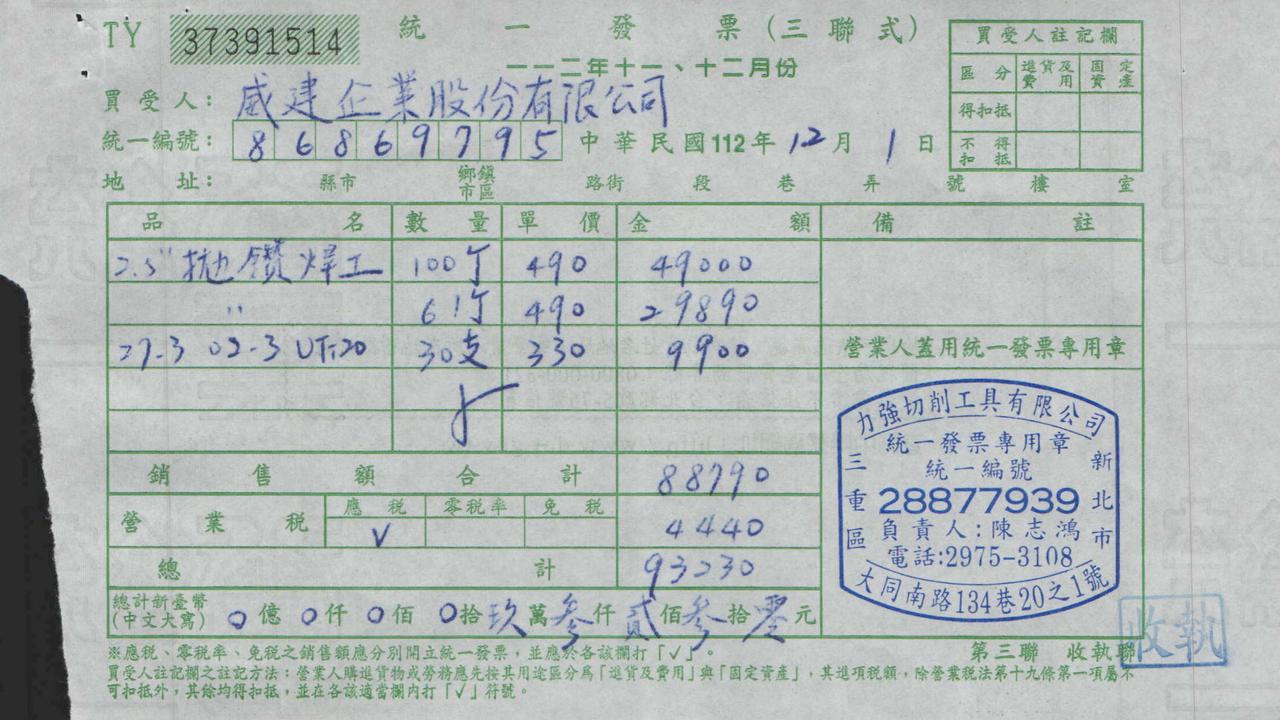 TY 37391514 統一發票(三聯式)
一一二年十一、十二月份
買受人註記欄
區分 進貨及費用 固定資產
得扣抵
不得扣抵
買受人: 威建企業股份有限公司
統一編號: 86869795 中華民國112年12月1日
地址: 縣市 鄉鎮市區 路街 段 巷 弄 號 樓 室
品名 數量 單價 金額 備註
2.5" 拋鑽焊工 100丁 490 49000
" 61丁 490 29890
27-3 02-3 UTi20 30支 330 9900 營業人蓋用統一發票專用章
銷售額合計 88790
營業稅 應稅 零稅率 免稅
V 4440
總計 93230
總計新臺幣(中文大寫) 0億0仟0佰0拾玖萬參仟貳佰參拾零元
力強切削工具有限公司
統一發票專用章
統一編號
三重區 28877939 新北市
負責人:陳志鴻
電話:2975-3108
大同南路134巷20之1號
收執
※應稅、零稅率、免稅之銷售額應分別開立統一發票,並應於各該欄打「√」。 第三聯 收執聯
買受人註記欄之註記方法:營業人購進貨物或勞務應先按其用途區分為「進貨及費用」與「固定資產」,其進項稅額,除營業稅法第十九條第一項屬不
可扣抵外,其餘均得扣抵,並在各該適當欄內打「√」符號。